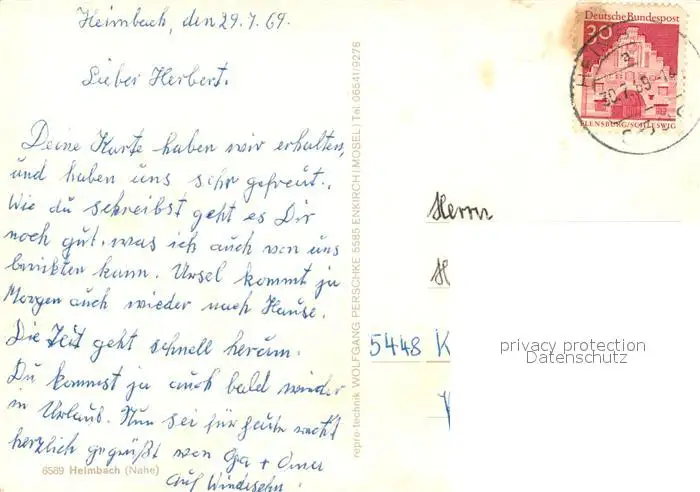 Heimbach, den 29.7.69.
Lieber Herbert.
Deine Karte haben wir erhalten,
und haben uns sehr gefreut.
Wie du schreibst geht es Dir
noch gut, was ich auch von uns
berichten kann. Ursel kommt ja
Morgen auch wieder nach Hause.
Die Zeit geht schnell herum.
Du kommst ja auch bald wieder
in Urlaub. Nun sei für heute recht
herzlich gegrüßt von Opa + Oma
Auf Wiedersehn!
6589 Heimbach (Nahe)
repro-technik WOLFGANG PERSCHKE 5585 ENKIRCH (MOSEL) Tel. 06541/9278
Deutsche Bundespost
30
FLENSBURG/SCHLESWIG
30.7.69
Herrn
H
5448 K
privacy protection
Datenschutz